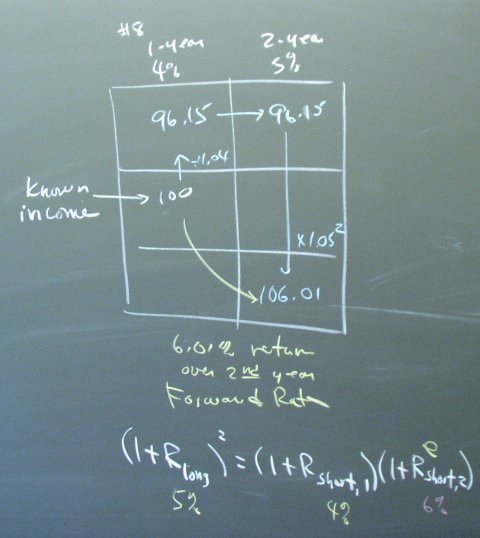 #8
1-year 2-year
4% 5%
96.15 → 96.15
↑ ÷1.04
Known income → 100
×1.05²
106.01
6.01% return
over 2nd year
Forward Rate
(1+R long)² = (1+R short,1)(1+Rᵉ short,2)
5% 4% 6%